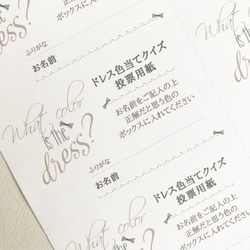 ふりがな
お名前
What color
is the
dress?
ドレス色当てクイズ
投票用紙
お名前をご記入の上
正解だと思う色の
ボックスに入れてください
ふりがな
お名前
What color
is the
dress?
ドレス色当てクイズ
投票用紙
お名前をご記入の上
正解だと思う色の
ボックスに入れてください